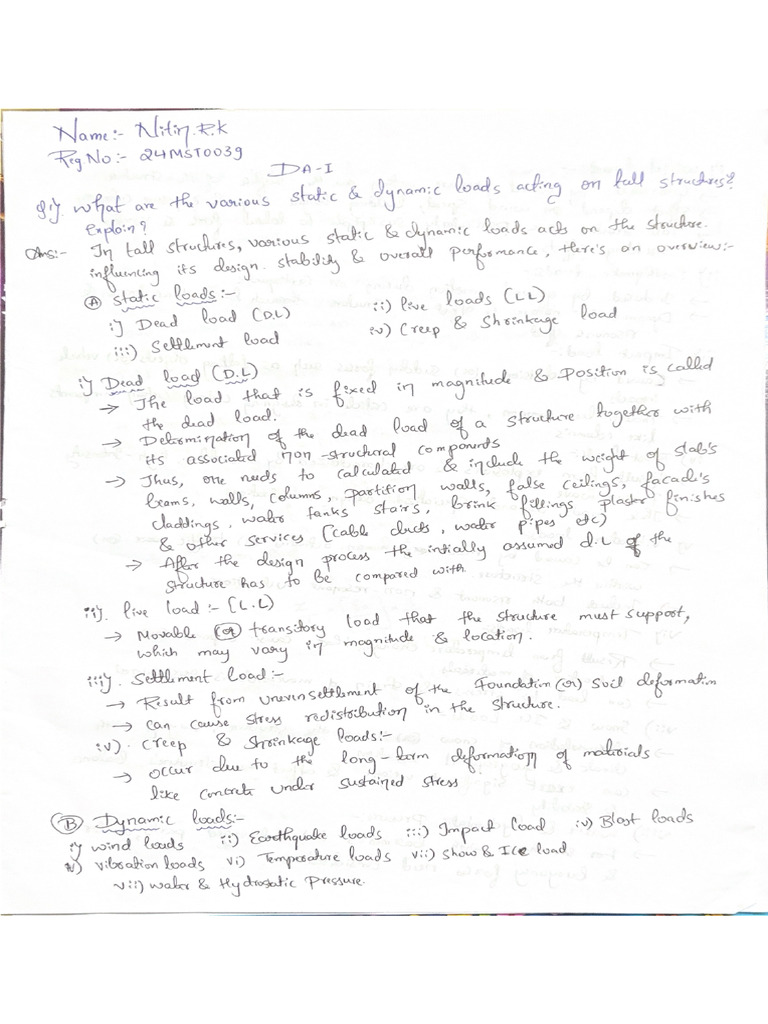 Name:- Nitin.R.K
Reg No:- 24MST0039
DA-I
Q.1). What are the various static & dynamic loads acting on tall structures?
Explain?
Ans:- In tall structures, various static & dynamic loads acts on the structure.
influencing its design. stability & overall performance, there's an overview:-
(A) Static loads:-
i) Dead load (D.L) ii) live loads (LL)
iii) Settlement load iv) Creep & Shrinkage load
i) Dead load (D.L)
→ The load that is fixed in magnitude & Position is called
the dead load.
→ Determination of the dead load of a structure together with
its associated non-structural components
→ Thus, one nuds to calculated & include the weight of slab's
beams, walls, columns, partition walls, false ceilings, facade's
claddings, water tanks stairs, brink fillings plaster finishes
& other services (cable ducts, water pipes etc)
→ After the design process the intially assumed d.L of the
structure has to be compared with
ii). live load:- [L.L)
→ Movable (or) transitory load that the structure must support,
which may vary in magnitude & location.
iii). Settlement load:-
→ Result from uneven settlement of the Foundation (or) Soil deformation
→ can cause stress redistribution in the structure.
iv). Creep & Shrinkage loads:-
→ Occur due to the long-term deformation of materials
like concrete under sustained stress
(B) Dynamic loads:-
i) wind loads ii) Earthquake loads iii) Impact load iv) Blast loads
v) vibration loads vi) Temperature loads vii) Show & Ice load
vii) water & Hydrosatic Pressure.